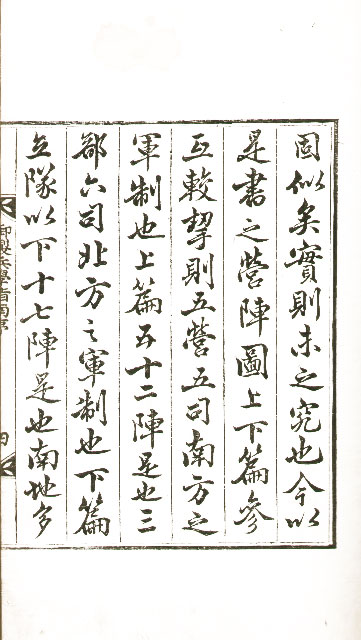 固似矣實則未之究也今以
是書之營陣圖上下篇參
互較挈則五營五司南方之
軍制也上篇五十二陣是也三
部六司北方之軍制也下篇
五隊以下十七陣是也南地多
御製兵學指南序
四